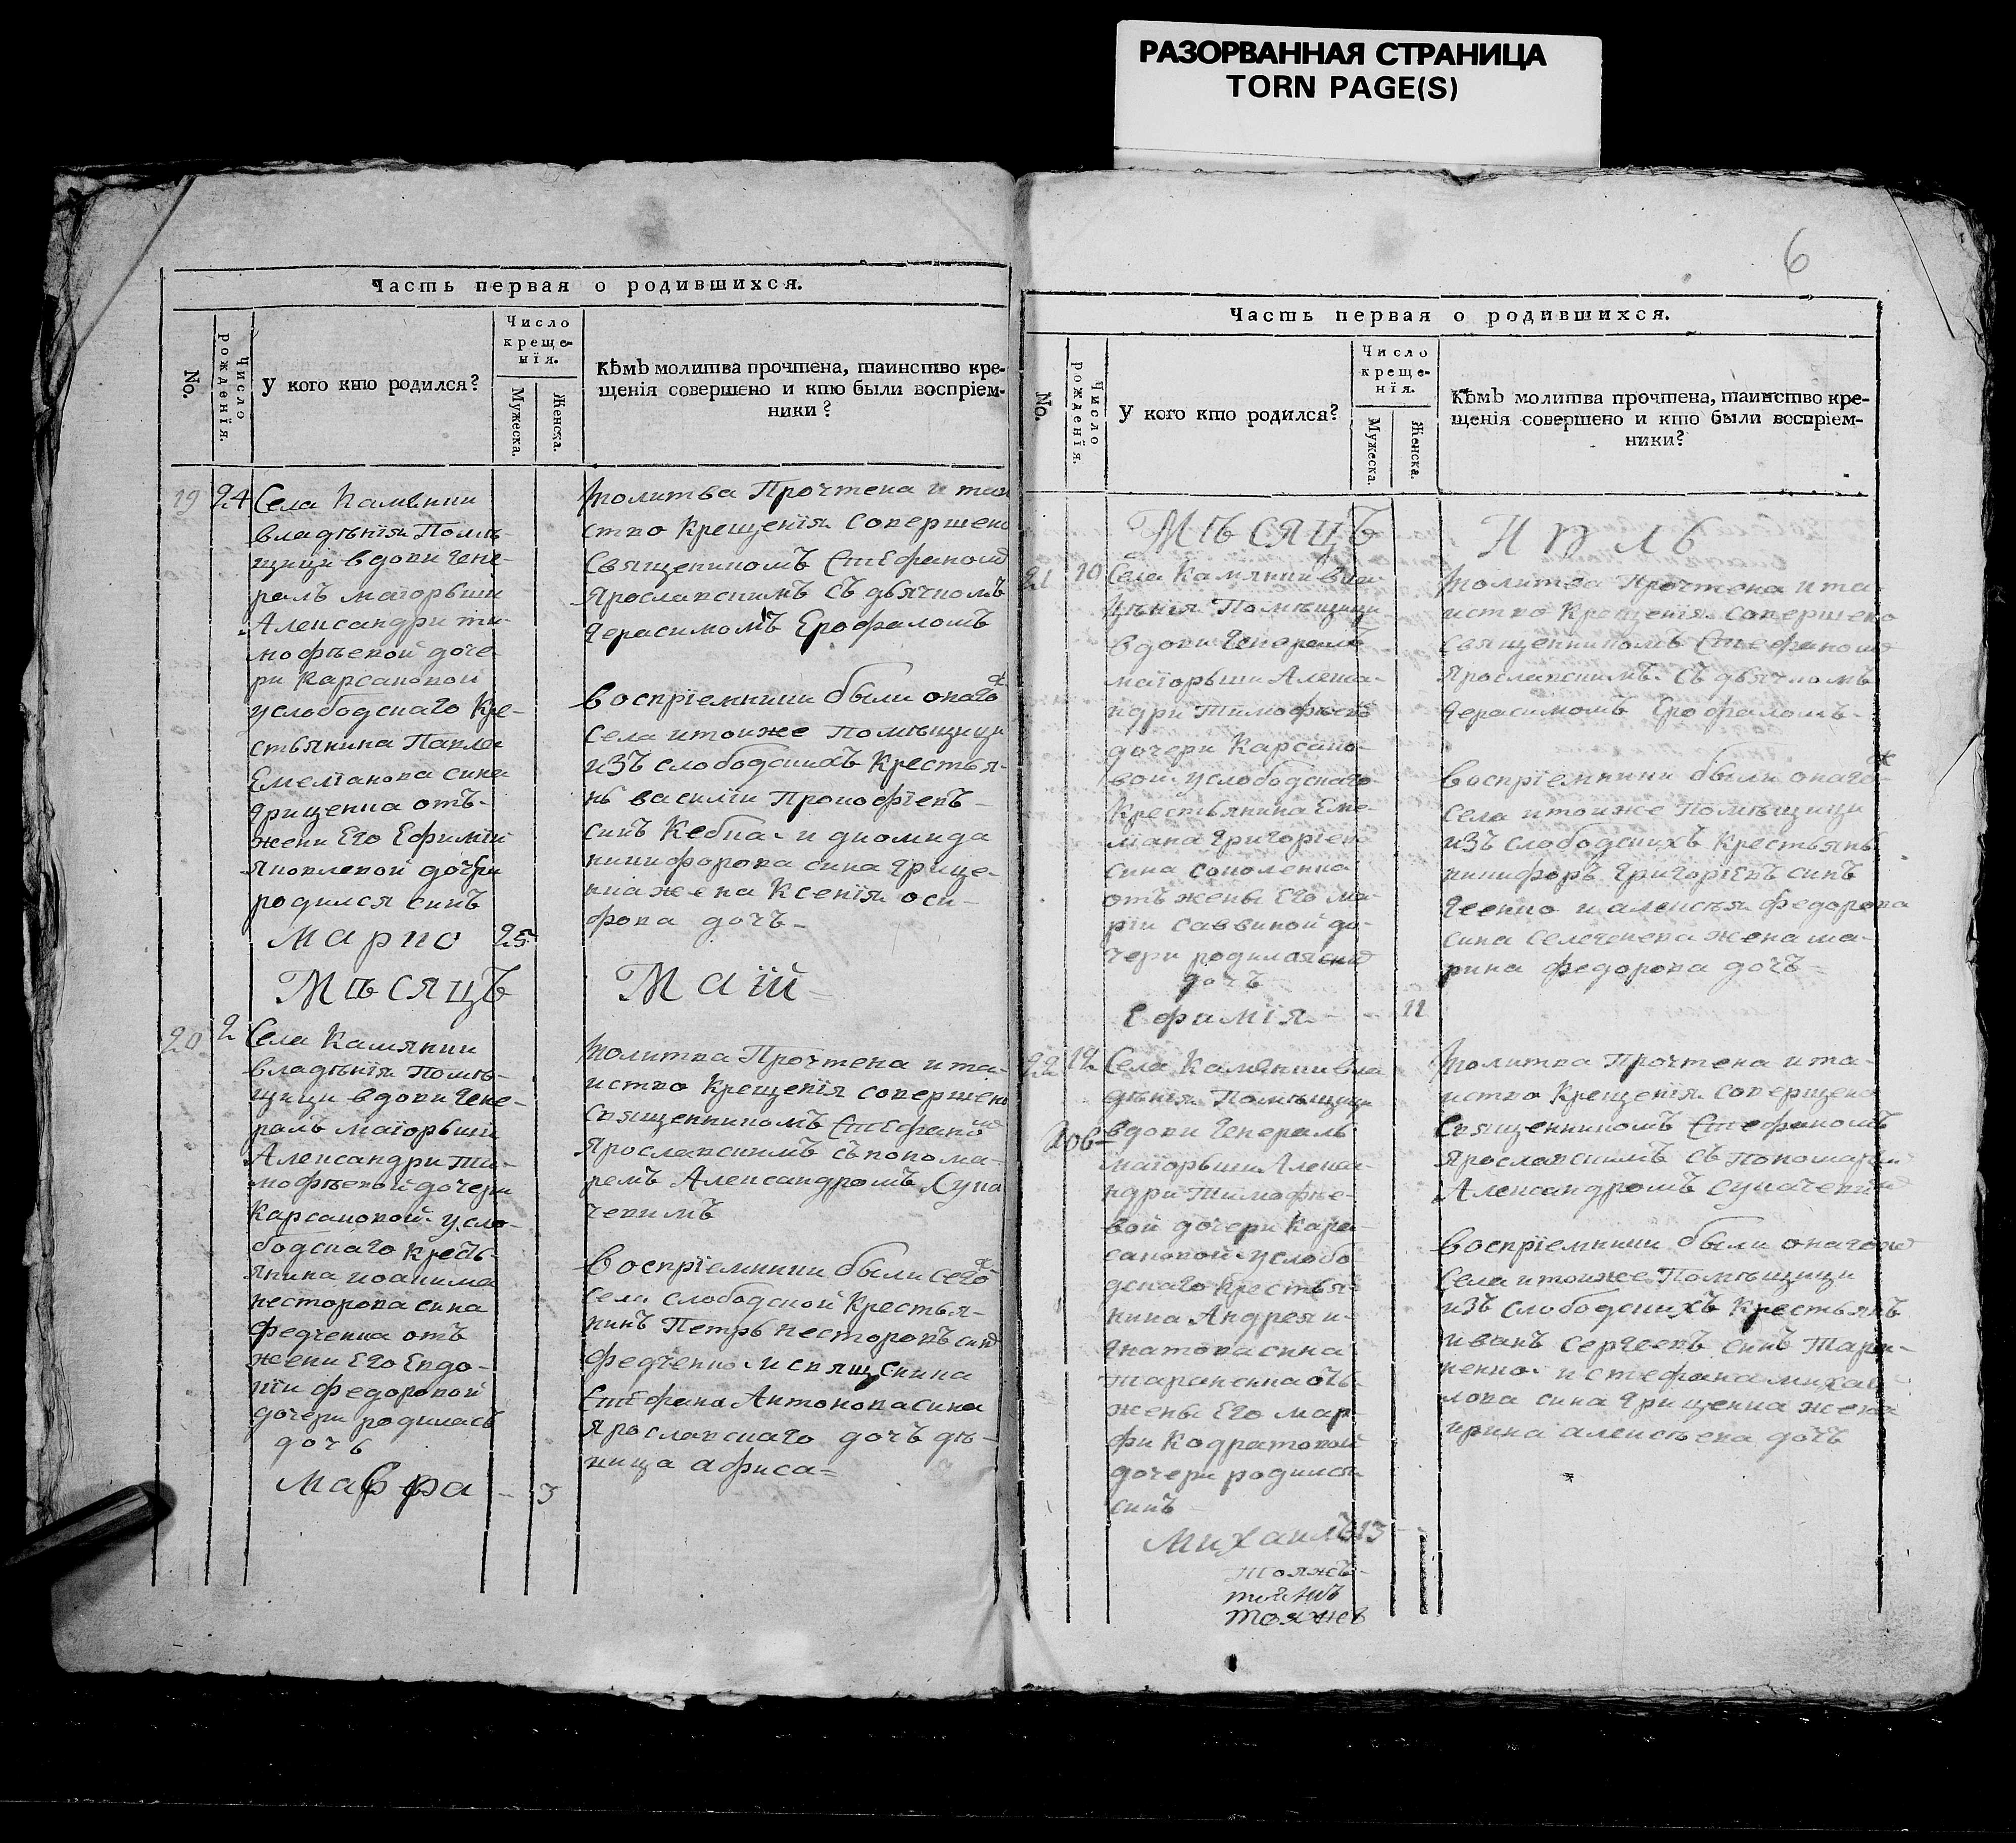 РАЗОРВАННАЯ СТРАНИЦА
TORN PAGE(S)
Часть первая о родившихся.
No.
Число рожденїя.
У кого кто родился?
Число
креще-
нїя.
Мужеска.
Женска.
Кѣмъ молитва прочтена, таинство кре-
щенія совершено и кто были воспріем-
ники?
19
24
Села Камянки
владѣнїя Помѣ-
щици вдови Гене-
ралъ маїорьши
Александри ти-
мофѣевой доче
ри Карсаковой
услободскаго Кре-
стьянина Павла
Емелїанова сина
Грищенка отъ
жени Его Ефимїи
Яковлевой дочери
родился синъ
Марко
25
Молитва Прочтена и таи
ство Крещенїя совершено
Священикомъ Стефаномъ
Ярославскимъ съ дьячкомъ
Герасимомъ Ерофаломъ
воспрїемники были онагож
села итоиже Помѣщици
изъ слободскихъ Крестья-
нъ василїи Прокофїевъ
синъ Кебка и диомида
никифорова сина Грище-
нка жена Ксенїя оси-
фова дочъ
Мѣсяцъ
Маїй
20
2
Села Камянки
владѣнїя Помѣ-
щици вдови Гене-
ралъ маїорьши
Александри Ти-
мофѣевой дочери
Карсаковой усло-
бодскаго Кресть-
янина иоакима
несторова сина
Федченка отъ
жени Его Евдо-
кїи федоровой
дочери родилась
дочь
Мавра
3
Молитва Прочтена ита-
инство Крещенїя совершено
Священникомъ Стефаномъ
Ярославскимъ съ понома-
ремъ Александромъ
чевимъ
воспрїемники были сегож
села слободской Крестья-
нинъ Петръ несторовъ синъ
федченко и священика
Стефана Антонова сина
Ярославскаго дочъ дѣ-
вица афиса
6
Часть первая о родившихся.
No.
Число рожденїя.
У кого кто родился?
Число
креще-
нїя.
Мужеска.
Женска.
Кѣмъ молитва прочтена, таинство кре-
щенія совершено и кто были воспріем-
ники?
Мѣсяцъ
21
10
Села Камянки вла-
дѣнїя Помѣщици
вдови Генералъ
маїорьши Алекса-
ндри Тимофѣево
дочери Карсако-
вой услободскаго
Крестьянина Еме-
лїана Григорїева
сина соколенка
отъ жены Его ма-
рїи саввиной до-
чери родилая
дочъ
Ефимїя
11
Молитва Прочтена ита
инство Крещенїя совершено
Священникомъ Стефаномъ
Ярославскимъ съ дьячкомъ
Герасимомъ Ерофаломъ
воспрїемники были онагож
села итоиже Помѣщици
изъ слободскихъ Крестьянъ
никифоръ Григорїевъ синъ
и алексѣя федорова
сина жена ма-
рина федорова дочъ
22
12
Села Камянки вла
дѣнїя Помѣщици
вдови Генералъ
маїорьши Алекса-
ндри Тимофѣе-
вой дочери Кар-
саковой услобо
дскаго Крестья-
нина Андрея и-
гнатова сина
тараненка отъ
жены Его мар-
фи Кодратовой
дочери родился
синъ
Михаилъ
13
Молитва Прочтена ита-
инство Крещенїя совершено
Священникомъ Стефаномъ
Ярославскимъ съ Пономаремъ
Александромъ
воспрїемники были онагож
села итоиже Помѣщици
изъ слободскихъ Крестьянъ
иванъ Сергѣевъ синъ Таран-
ненко и стефана михаи
лова сина Грищенка жена
ирина алексѣева дочъ